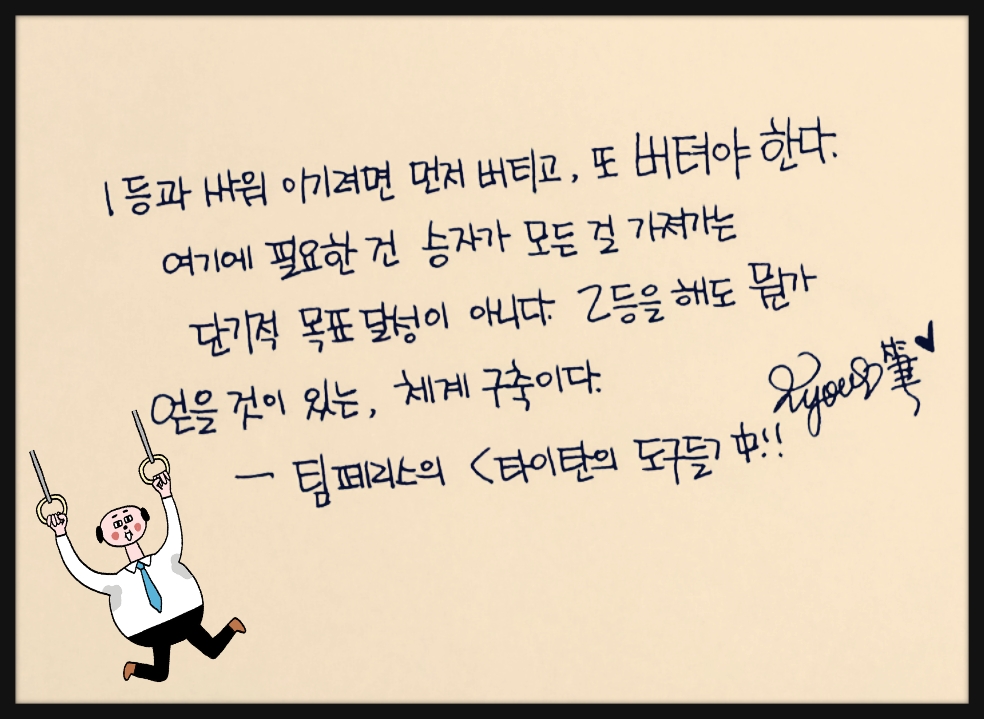 1등과 싸워 이기려면 먼저 버티고, 또 버텨야 한다.
여기에 필요한 건 승자가 모든 걸 가져가는
단기적 목표 달성이 아니다. 2등을 해도 뭔가
얻을 것이 있는, 체계 구축이다.
- 팀페리스의 <타이탄의 도구들> 中!!
筆♥